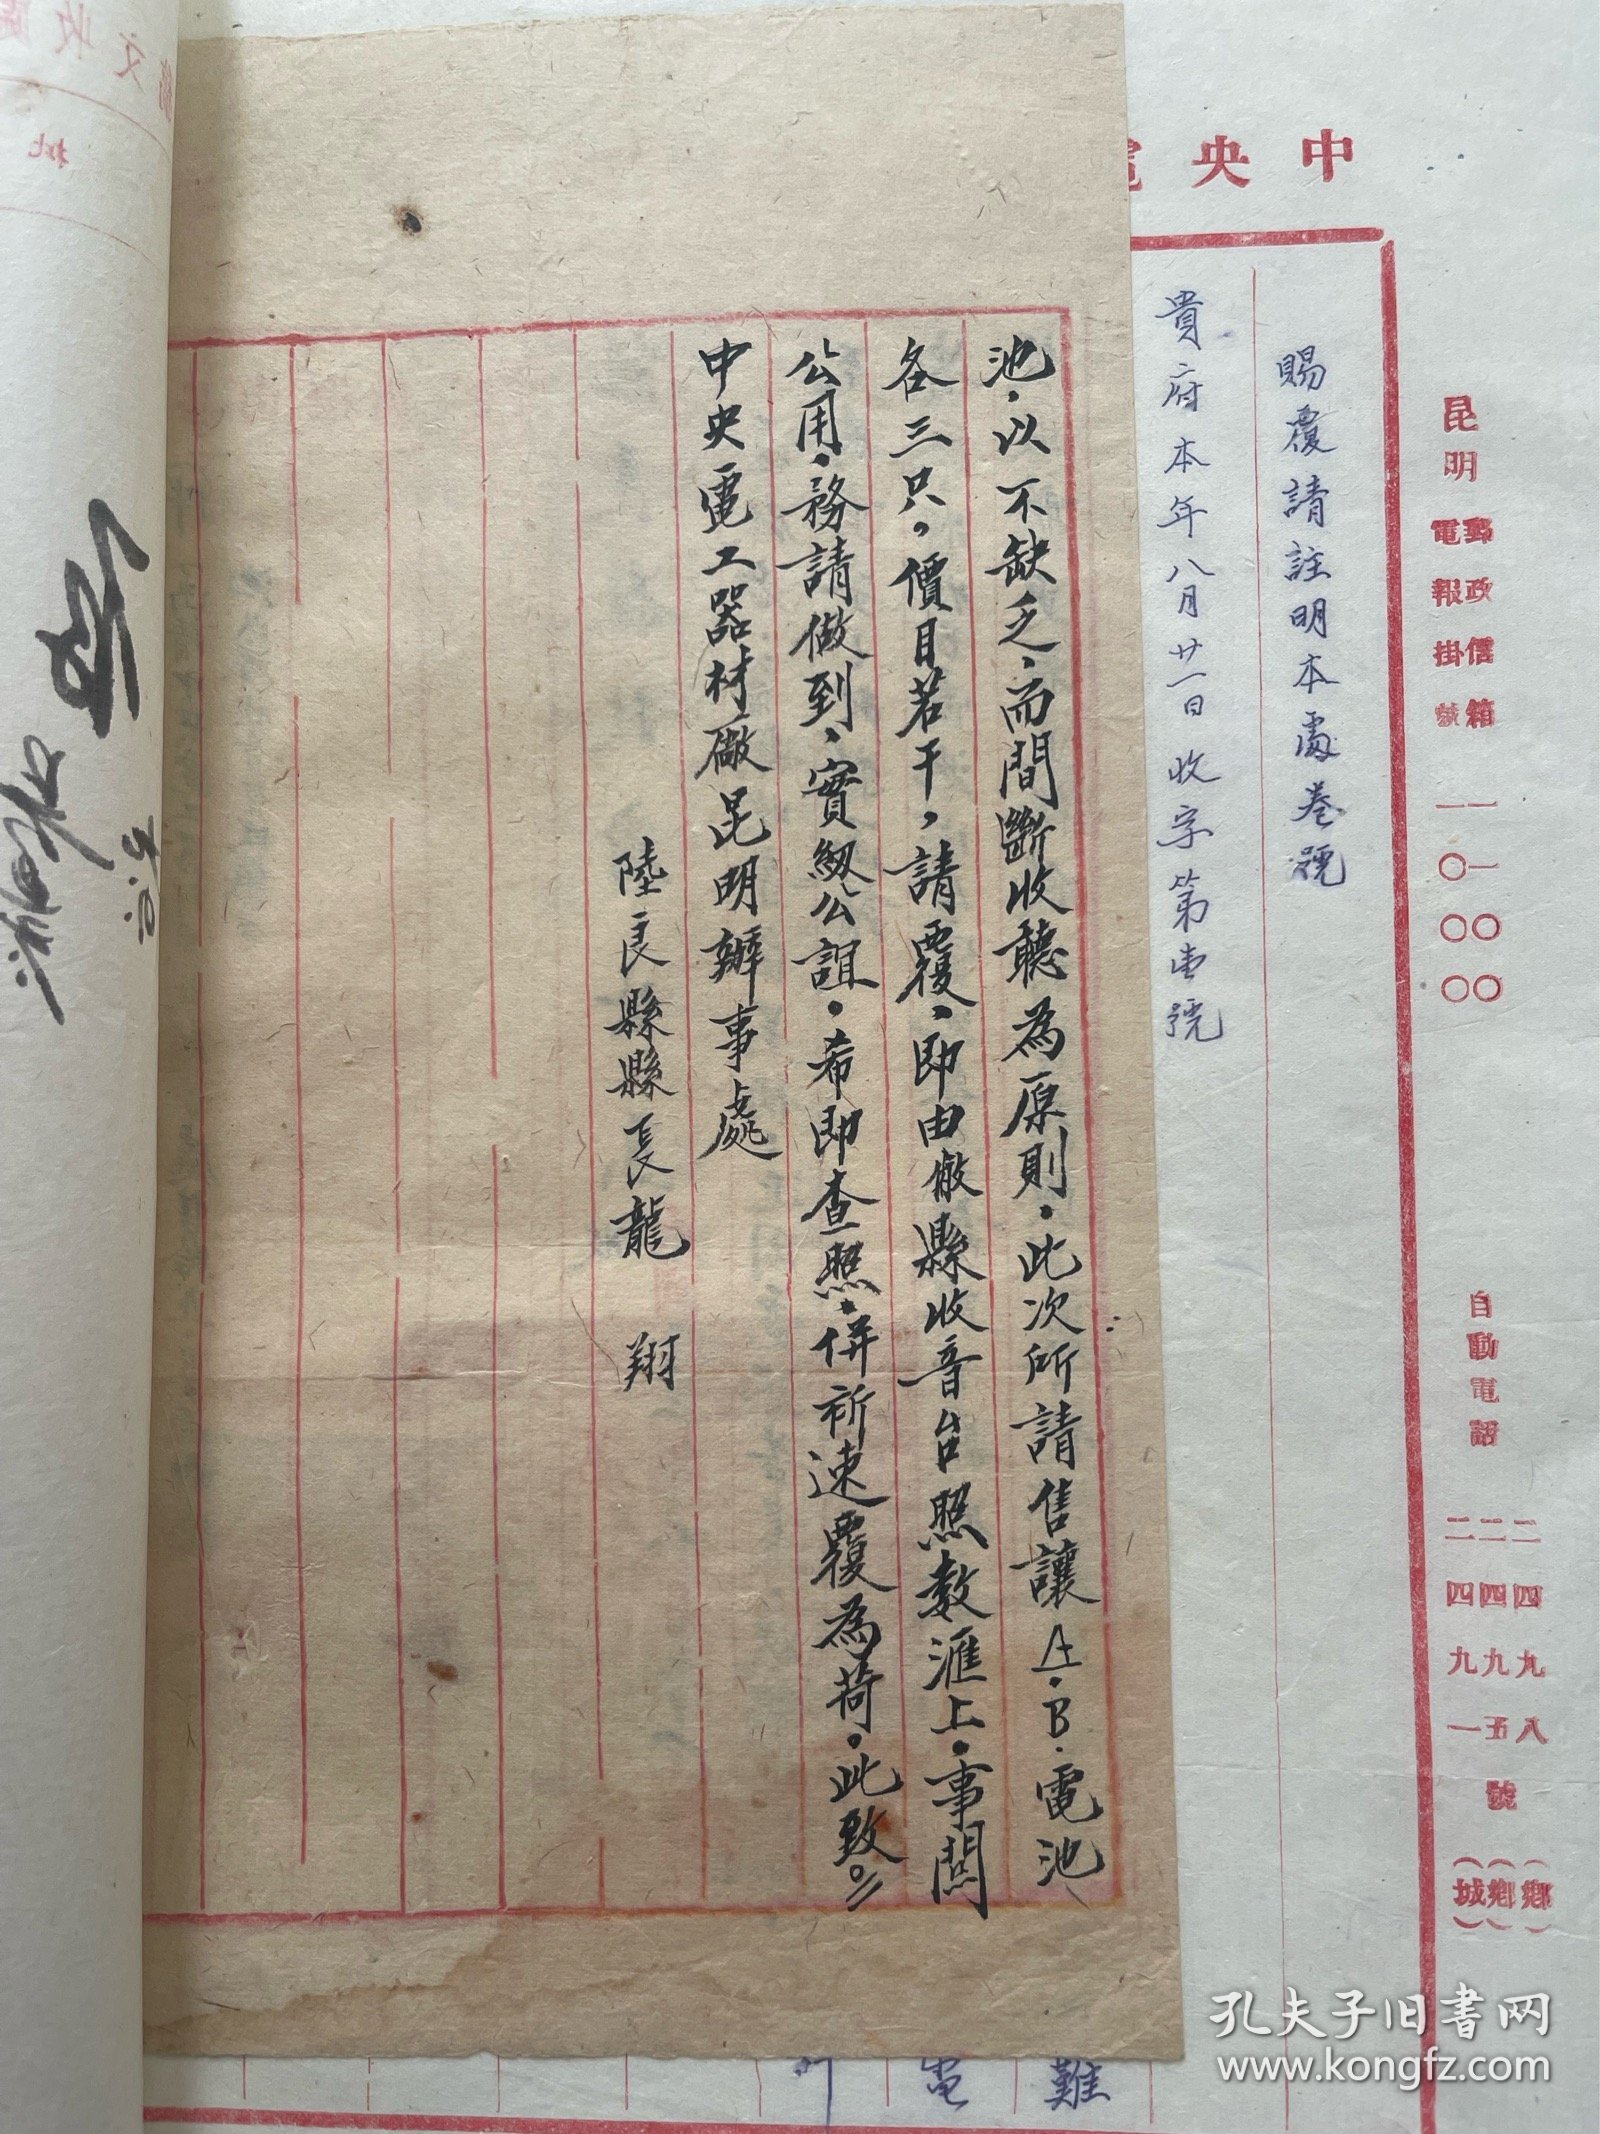 中央電
昆明
郵政信箱 一一〇〇〇
電報掛號 一〇〇〇
自動電話
二四九八
二四九五
二四九一
號
(鄉)
(鄉)
(城)
賜覆請註明本處卷號
貴府本年八月廿一日收字第壹號
池,以不缺乏,而間斷收聽為原則,此次所請售讓A.B.電池
各三只,價目若干,請覆,即由敝縣收音台照數滙上,事關
公用,務請做到,實級公誼。希即查照,併祈速覆為荷。此致。
中央電工器材廠昆明辦事處
陸良縣縣長龍 翔
難
電
孔夫子旧书网
www.kongfz.com